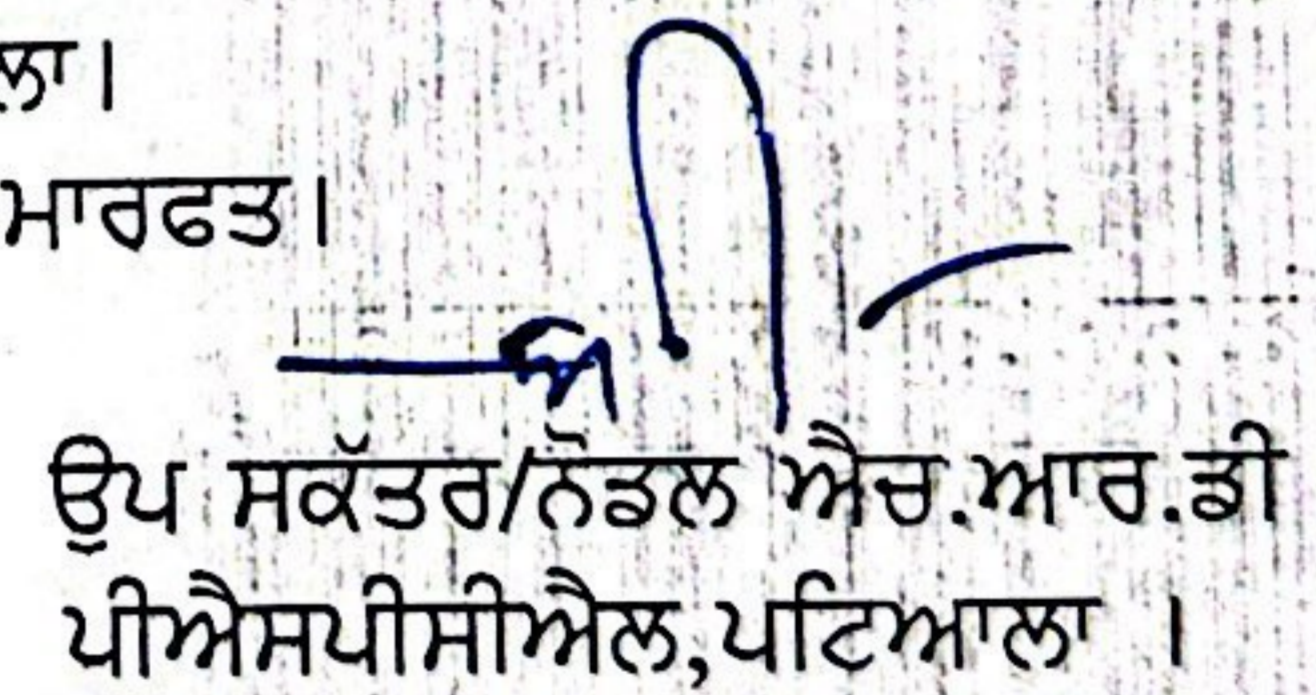 ਲਾ।
ਮਾਰਫਤ।
ਉਪ ਸਕੱਤਰ/ਨੋਡਲ ਐਚ.ਆਰ.ਡੀ
ਪੀਐਸਪੀਸੀਐਲ,ਪਟਿਆਲਾ ।